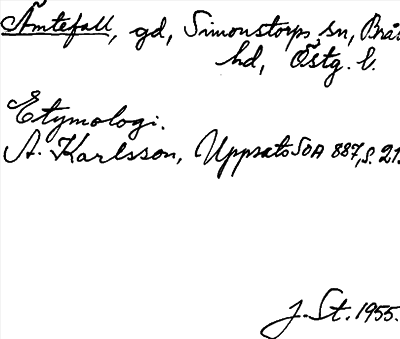 Åmtefall, gd, Simonstorps sn, Brå
hd, Östg. l.
Etymologi.
A. Karlsson, Uppsats SOA 887, s. 21.
J. St. 1955.